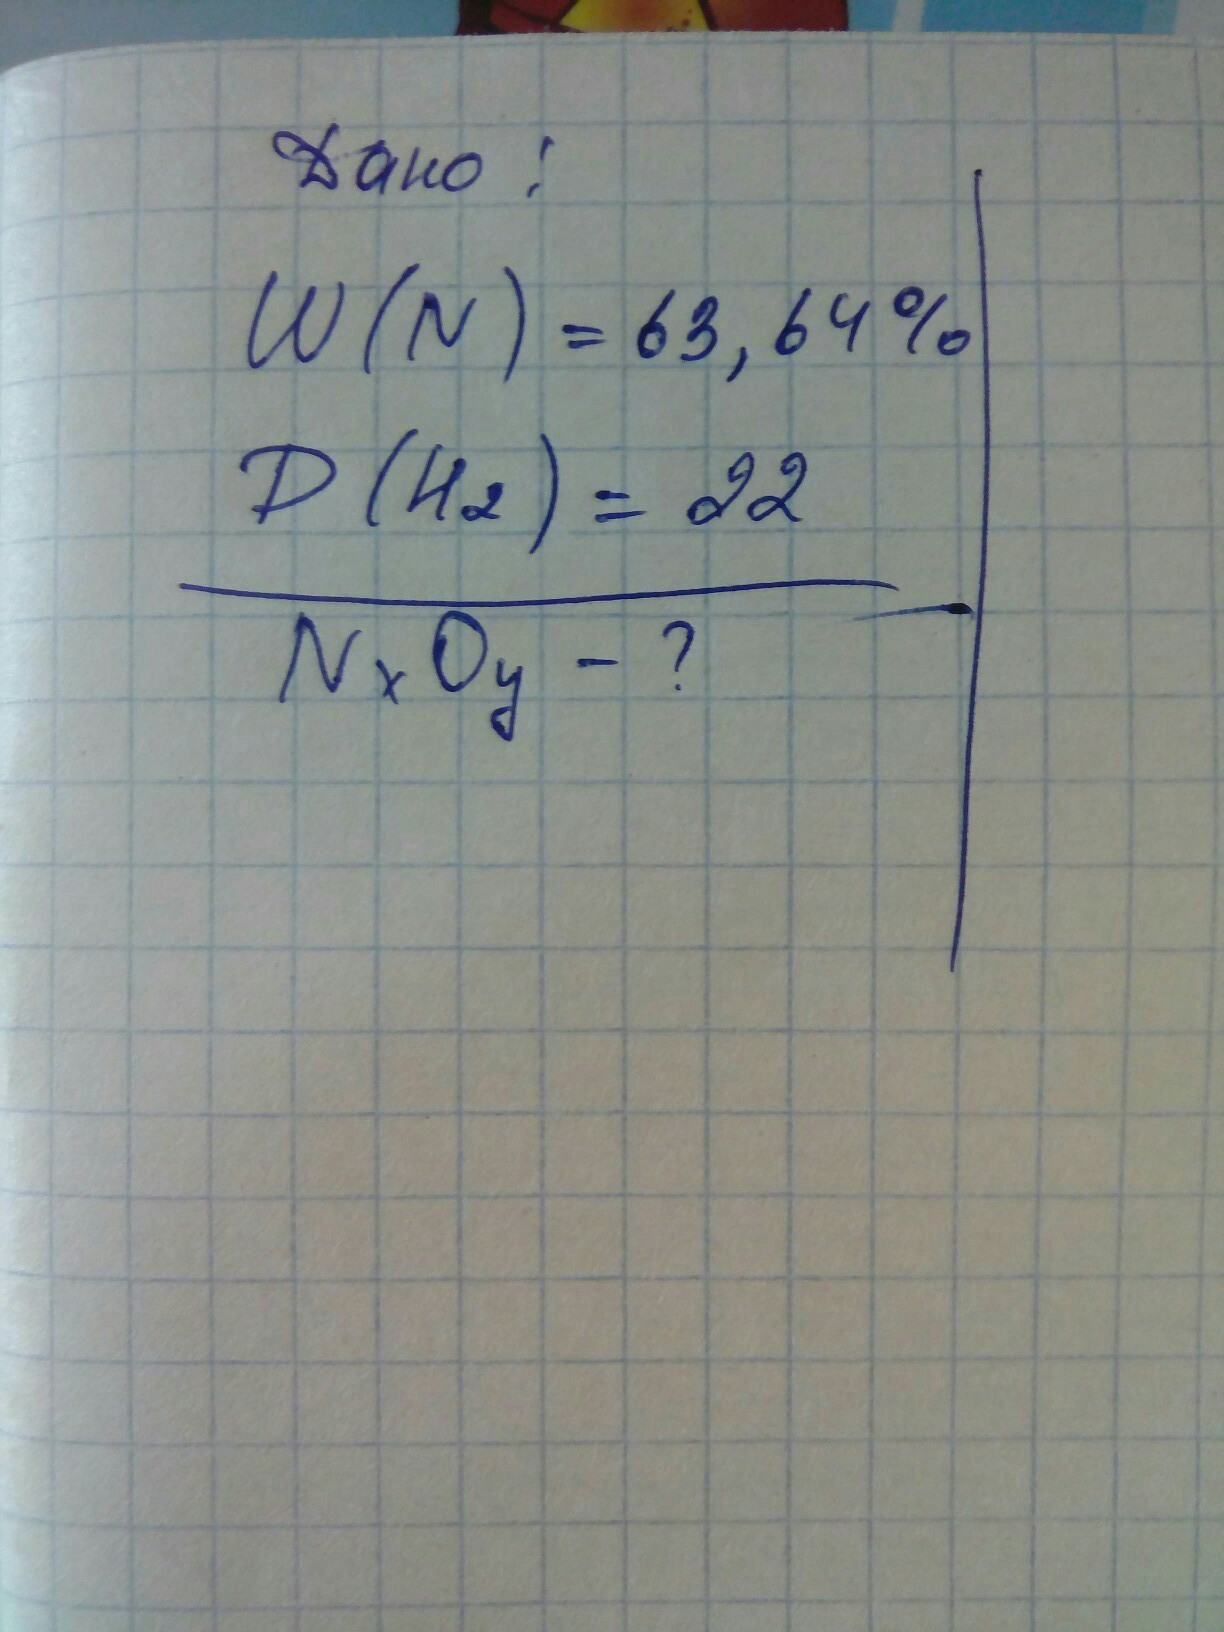 Дано:
W(N) = 63,64%
D(H2) = 22
NxOy - ?